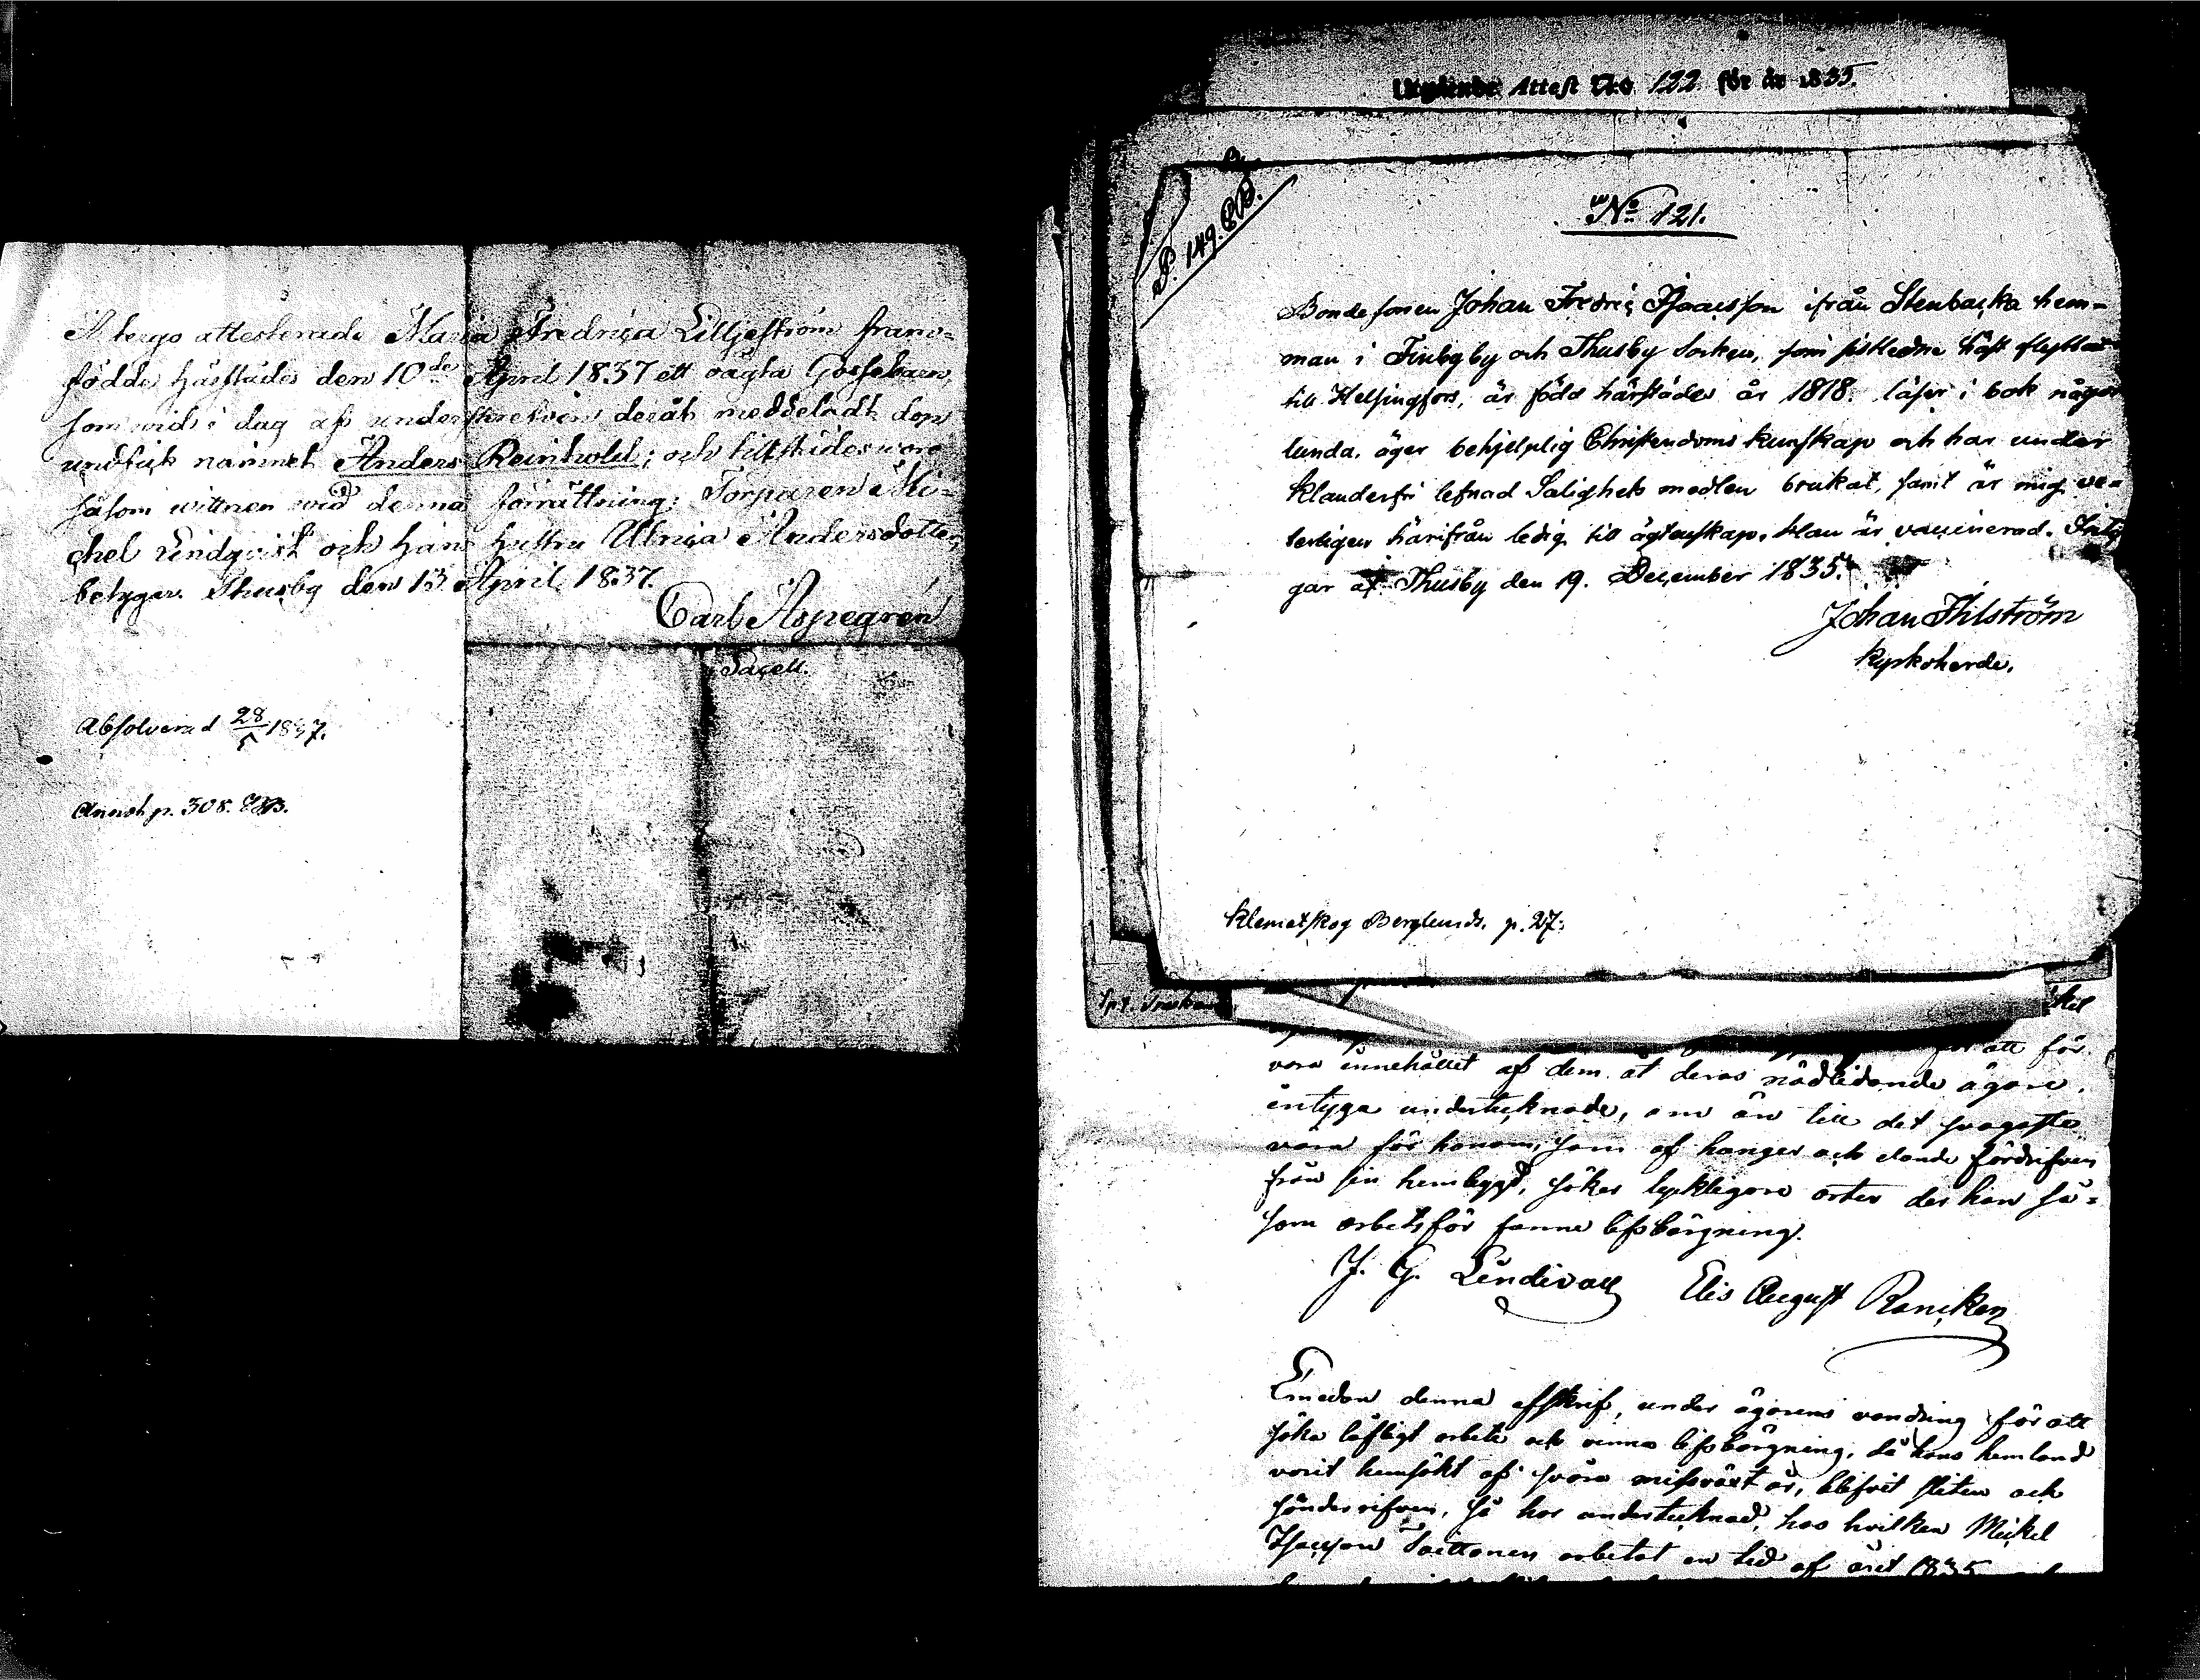 A tergo attesterade Maria Fredrica Lilljeström fram-
födde härstädes den 10de April 1837 ett oägta Gossebarn,
som vid i dag af underskrefven deråt meddeladt dop
undfick namnet Anders Reinhold; och tillstädes woro
såsom wittnen wid denna förrättning: Torparen Mi-
chel Lindqvist och hans hustru Ulrica Andersdotter,
betygar. Thusby den 13 April 1837.
Carl Aspegren
Sacell.
Absolverad 28/5 1837.
Annot. p. 308.
Utgående Attest N:o 122 för år 1835.
P. 149. C.B.
No 121.
Bondesonen Johan Fredric Isaacsson ifrån Stenbacka hem-
man i Finbyby och Thusby Socken, som sistledne höst flyttat
till Helsingfors, är född härstädes år 1818. läser i bok någor
lunda, äger behjelplig Christendoms kunskap och har under
klanderfri lefnad Salighets medlen brukat, samt är mig ve-
terligen härifrån ledig till ägtenskap. Han är vaccinerad. Intÿ
gar af Thusby den 19. December 1835.
Johan Ahlström
Kyrkoherde.
Klemetskog Berglunds. p. 27.
för att för
vara innehållet af dem åt deras nödlidande ägare,
intyga undertecknade, om än till det svagaste
värn för honom, som af hunger och elände fördrifven
från sin hembygd, söker lyckligare orter der han så-
som arbetsför funne lifsbärgning.
J. G. Lindevall Elis August Rancken
Emedan denna afskrift, under ägarens vandring för att
söka lofligt arbete och vinna lifsbärgning, då hans hemland
varit hemsökt af svåra missväxt år, blifvit sliten och
sönderrifven, så har undertecknad, hos hvilken Mickel
Isacsson Taittonen arbetat en tid af året 1835